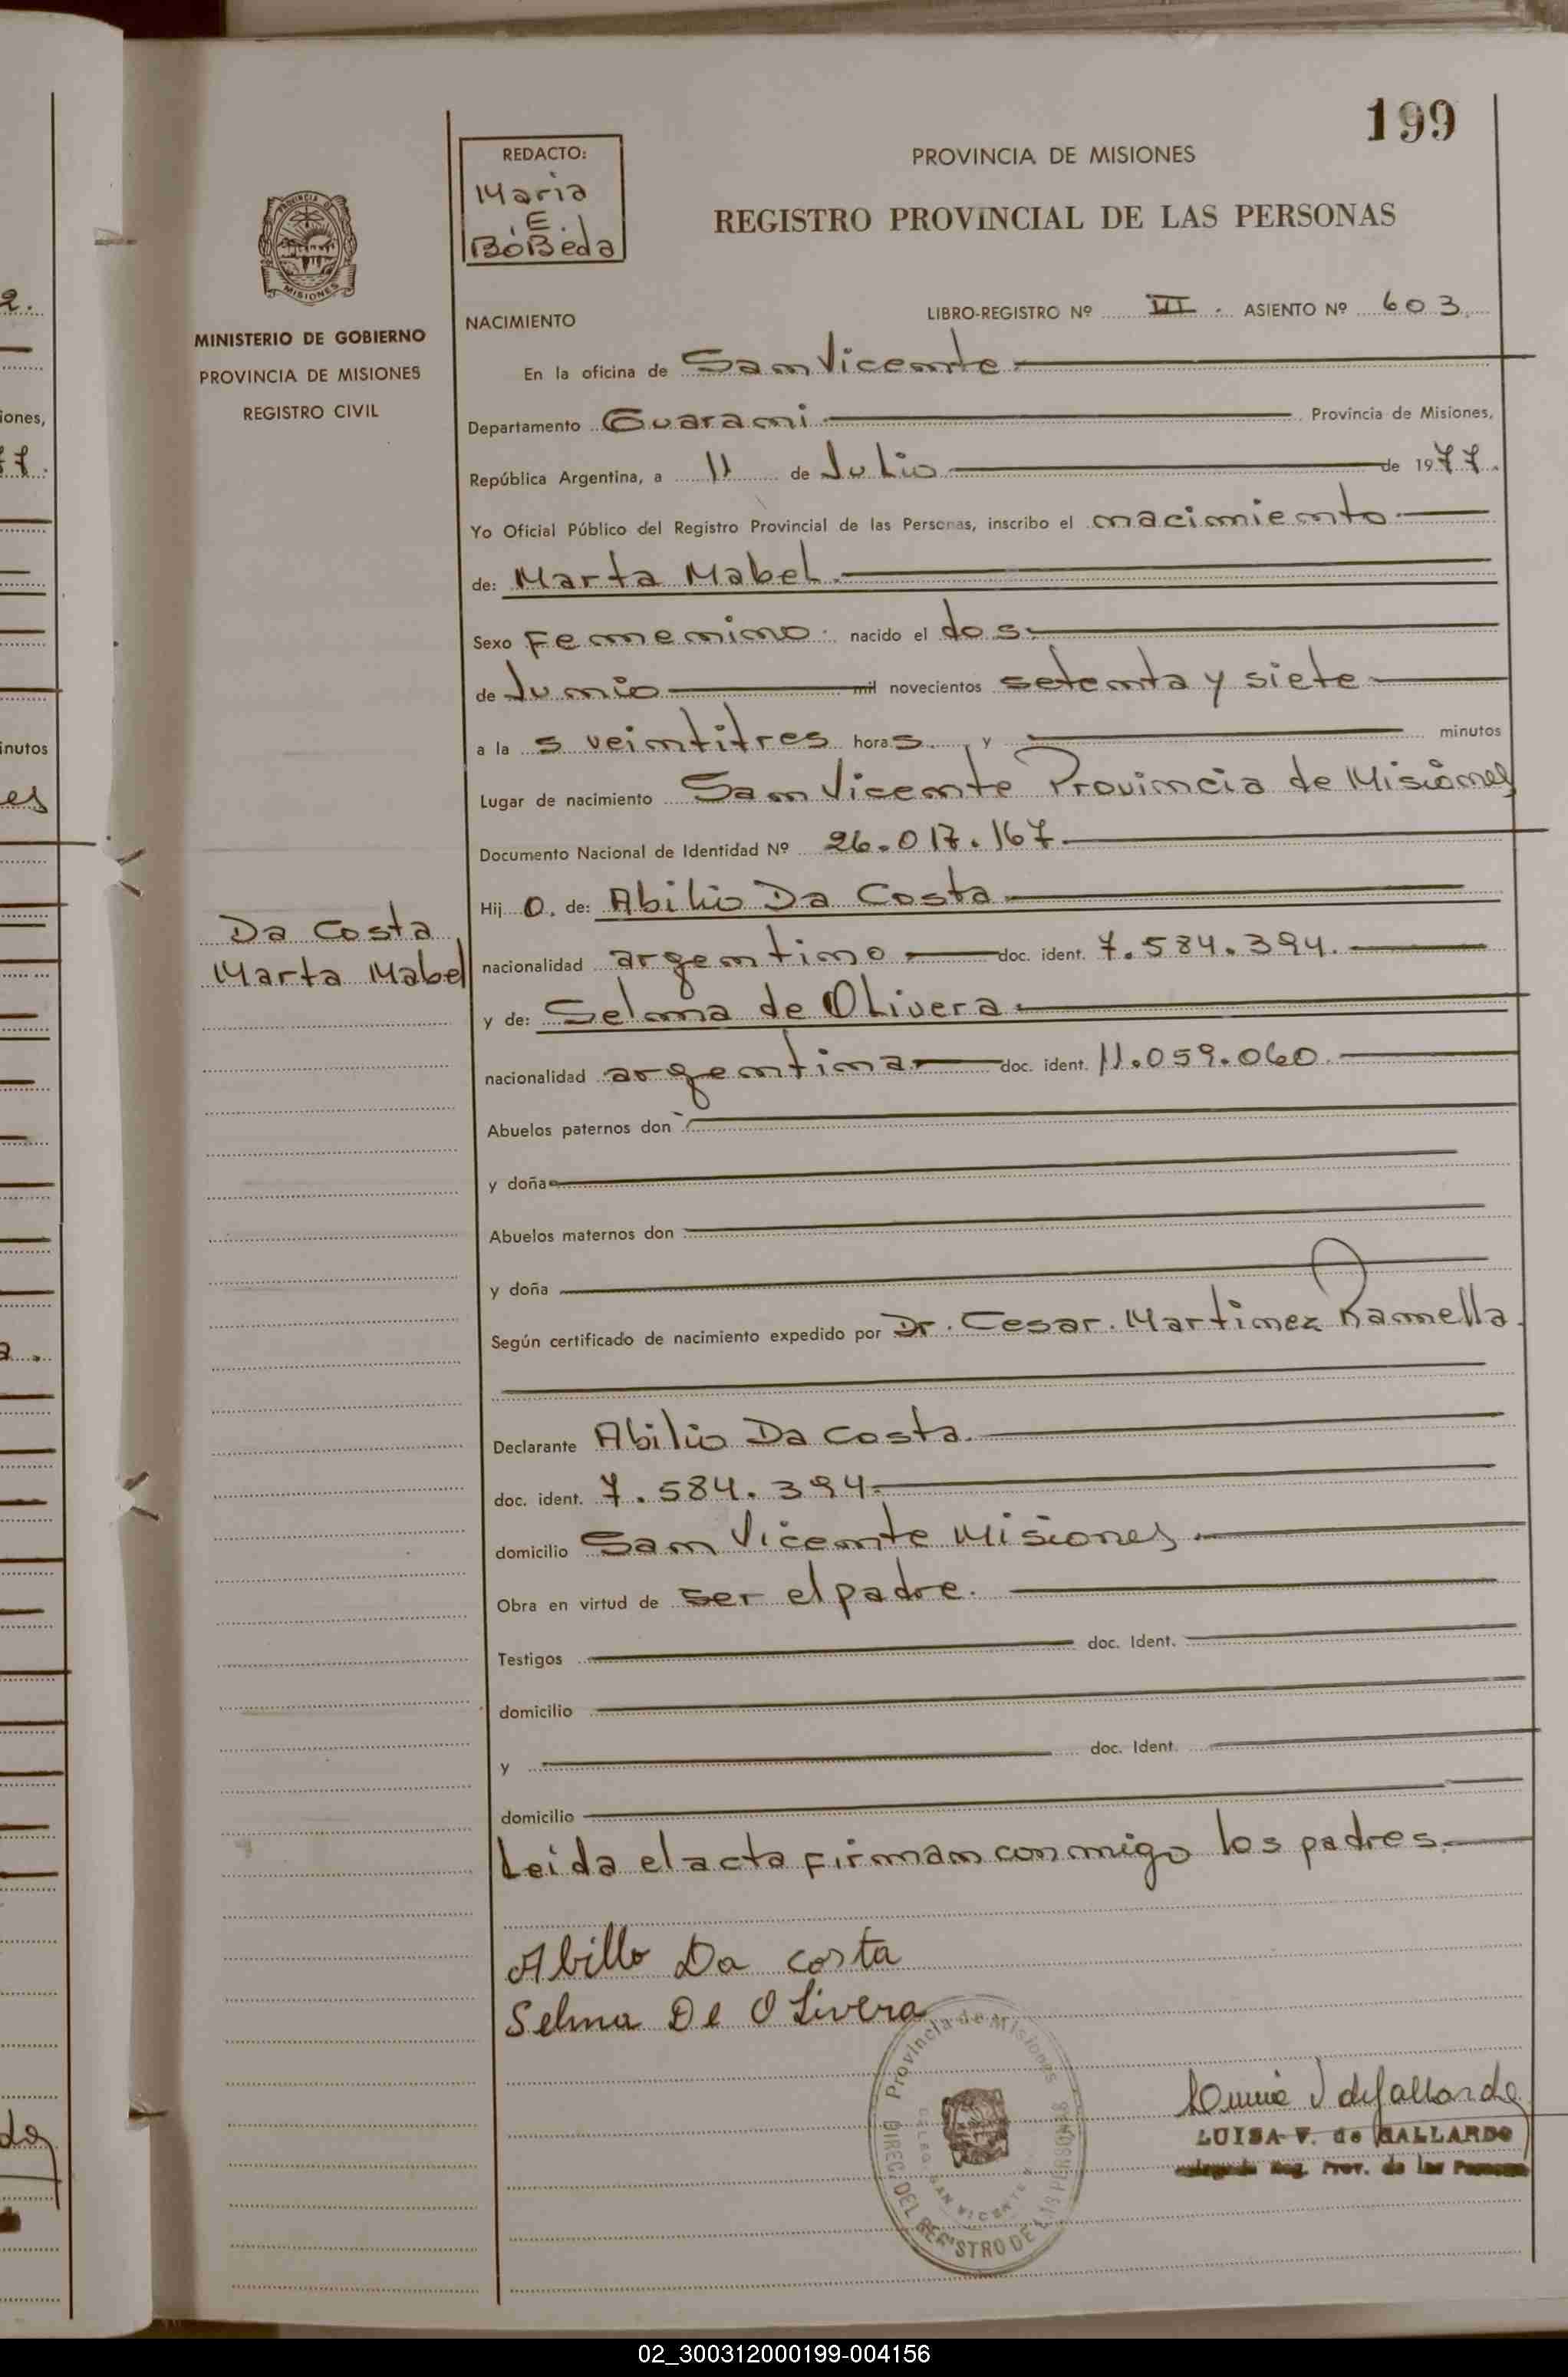 199
REDACTO:
Maria
E.
BoBeda
PROVINCIA DE MISIONES
REGISTRO PROVINCIAL DE LAS PERSONAS
PROVINCIA DE
MISIONES
MINISTERIO DE GOBIERNO
PROVINCIA DE MISIONES
REGISTRO CIVIL
NACIMIENTO LIBRO-REGISTRO Nº III. ASIENTO Nº 603.
En la oficina de San Vicente
Departamento Guarani Provincia de Misiones,
República Argentina, a 11 de Julio de 1977.
Yo Oficial Público del Registro Provincial de las Personas, inscribo el nacimiento
de: Marta Mabel.
Sexo Femenino. nacido el dos.
de Junio mil novecientos setenta y siete
a la s veintitres horas. y minutos
Lugar de nacimiento San Vicente Provincia de Misiones
Documento Nacional de Identidad Nº 26.017.167
Hij o. de: Abilio Da Costa
Da Costa
Marta Mabel
nacionalidad argentino doc. ident. 7.584.394.
y de: Selma de Olivera
nacionalidad argentina doc. ident. 11.059.060.
Abuelos paternos don
y doña
Abuelos maternos don
y doña
Según certificado de nacimiento expedido por Dr. Cesar. Martinez Ramella.
Declarante Abilio Da Costa.
doc. ident. 7.584.394.
domicilio San Vicente Misiones.
Obra en virtud de ser el padre.
Testigos doc. Ident.
domicilio
y doc. Ident.
domicilio
Leida el acta firman conmigo los padres.
Abillo Da costa
Selma De Olivera
Provincia de Misiones
DELEG. SAN VICENTE
DIREC. DEL REGISTRO DE LAS PERSONAS
LUISA V. de GALLARDO
Reg. Prov. de las Personas
02_300312000199-004156